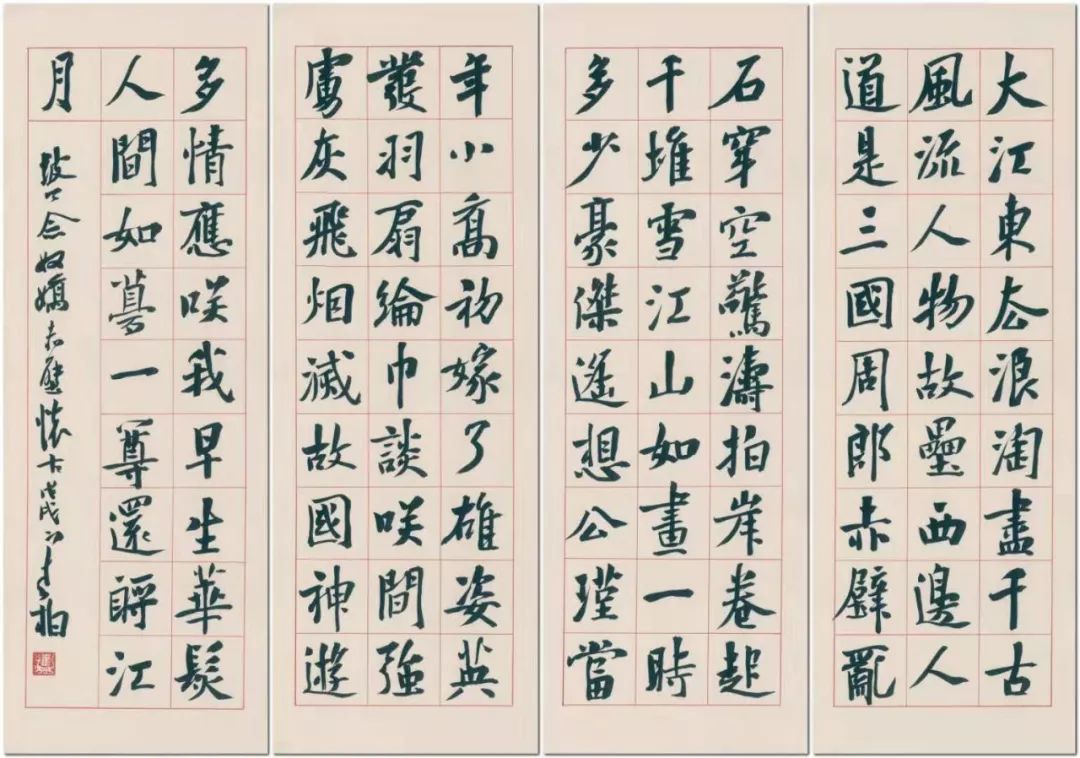 大江東去浪淘盡千古
風流人物故壘西邊人
道是三國周郎赤壁亂
石穿空驚濤拍岸卷起
千堆雪江山如畫一時
多少豪傑遙想公瑾當
年小喬初嫁了雄姿英
發羽扇綸巾談咲間強
虜灰飛烟滅故國神遊
多情應咲我早生華髮
人間如夢一尊還酹江
月
坡公念奴嬌赤壁懷古戊戌初